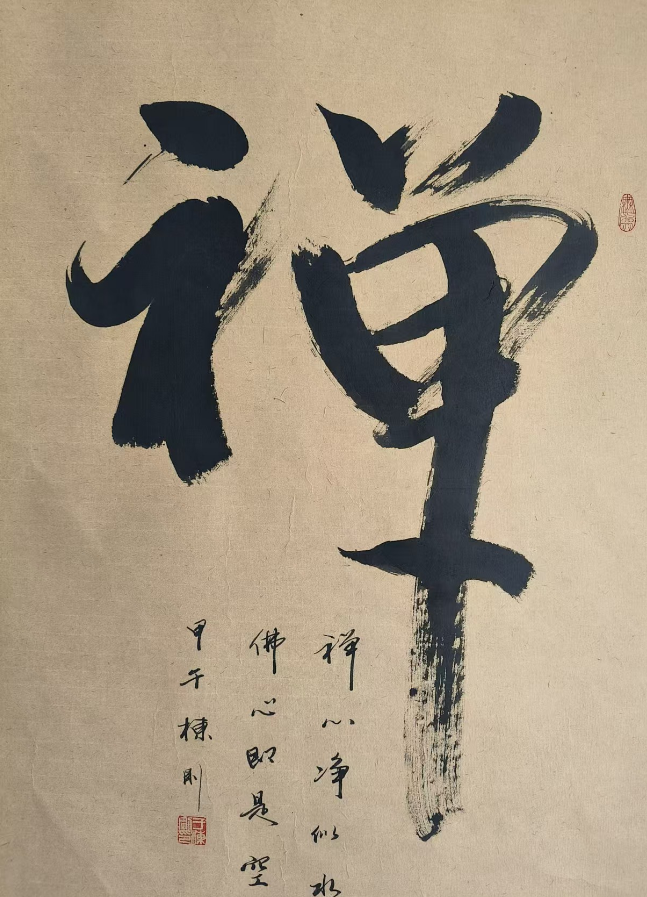 禅
禅心净似水
佛心即是空
甲午栋则